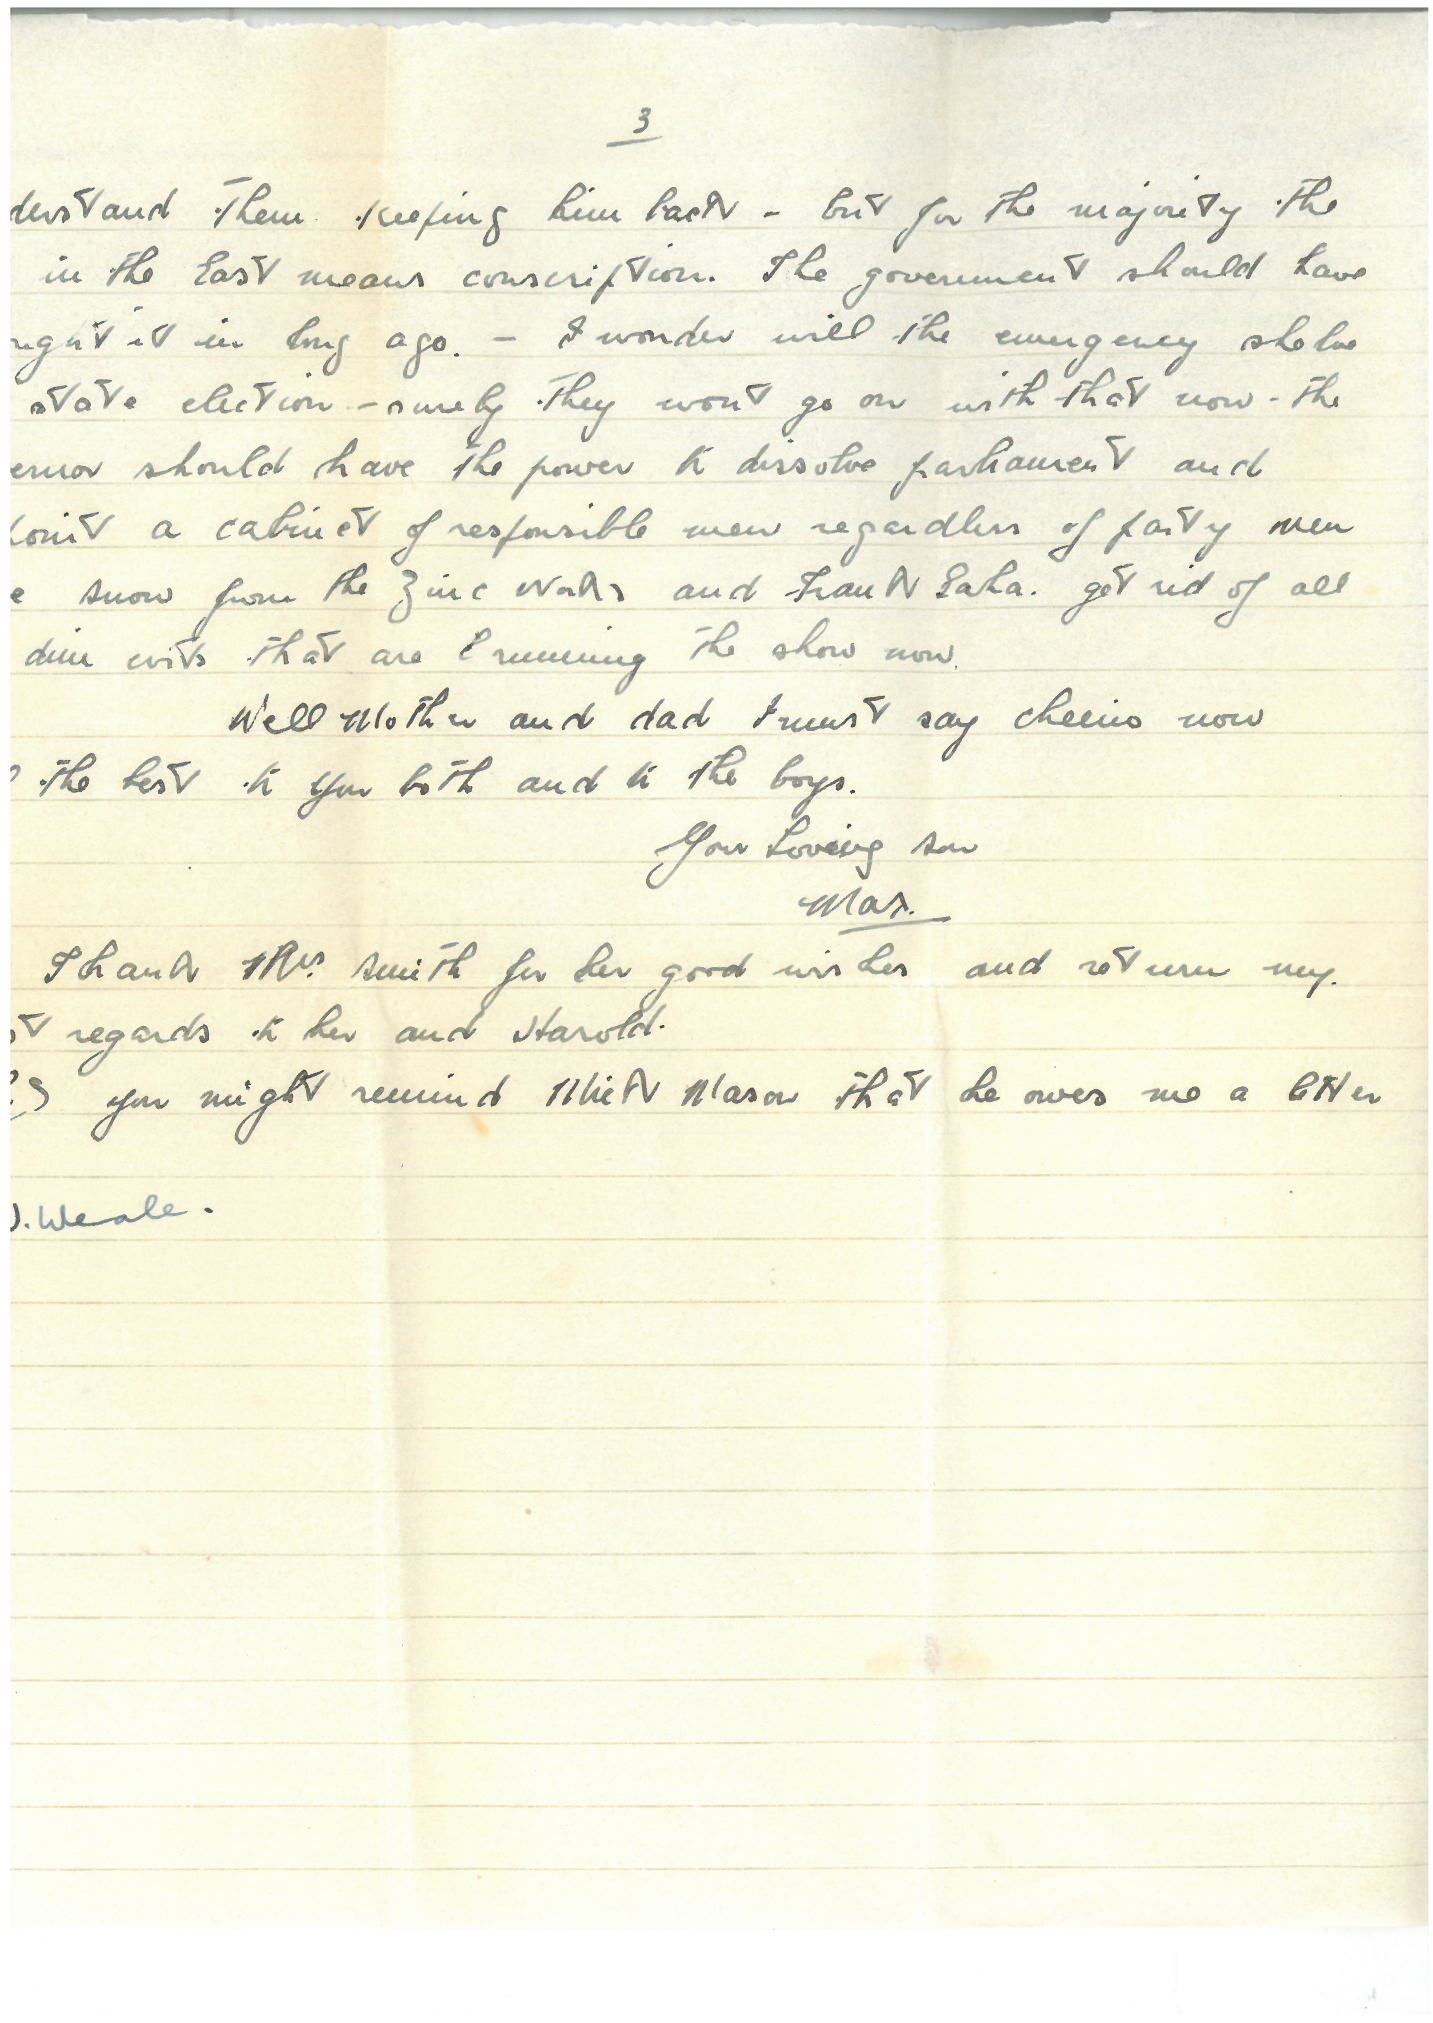 3
derstand them keeping him back - but for the majority the
in the East means conscription. The government should have
ught it in long ago. - I wonder will the emergency shelve
state election - surely they wont go on with that now - the
ernor should have the power to dissolve parliament and
point a cabinet of responsible men regardless of party men
e Snow from the Zinc Works and Frank Gaha. get rid of all
dim wits that are running the show now.
Well Mother and dad I must say cheerio now
the best to you both and to the boys.
Your Loving son
Max.
Thank Mrs Smith for her good wishes and return my
st regards to her and Harold.
S you might remind Mick Mason that he owes me a letter
J. Weale.